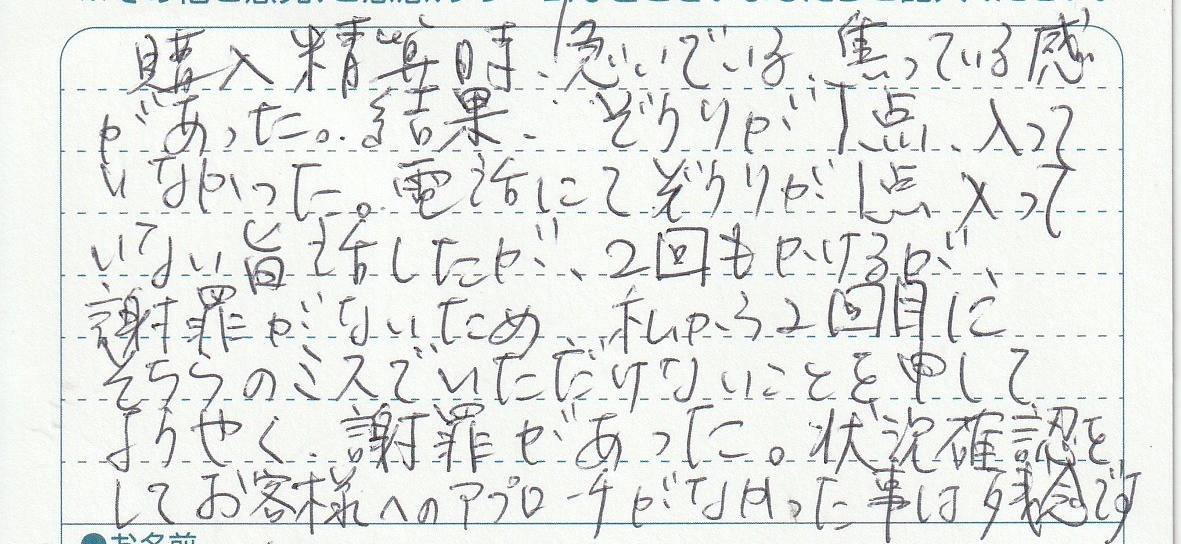 購入精算時、急いでいる、焦っている感
があった。結果、ぞうりが1点、入って
いなかった。電話にてぞうりが1点入って
いない旨話したが、2回もかけるが、
謝罪がないため、私から2回目に
そちらのミスでいただけないことを申して
ようやく、謝罪があった。状況確認を
してお客様へのアプローチがなかった事は残念です
●お名前